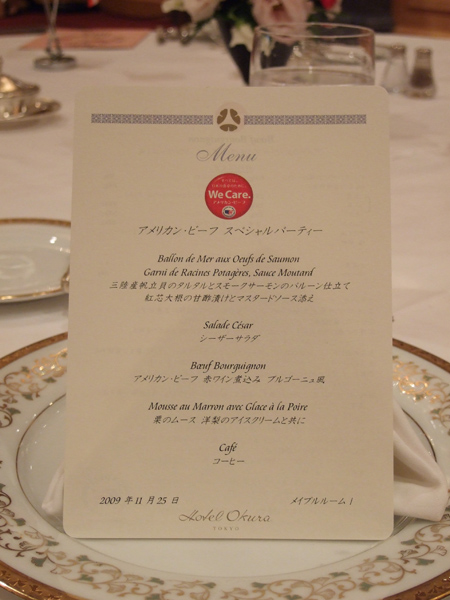 Menu
We Care.
アメリカン・ビーフ
アメリカン・ビーフ スペシャルパーティー
Ballon de Mer aux Oeufs de Saumon
Garni de Racines Potagères, Sauce Moutard
三陸産帆立貝のタルタルとスモークサーモンのバルーン仕立て
紅芯大根の甘酢漬けとマスタードソース添え
Salade César
シーザーサラダ
Bœuf Bourguignon
アメリカン・ビーフ 赤ワイン煮込み ブルゴーニュ風
Mousse au Marron avec Glace à la Poire
栗のムース 洋梨のアイスクリームと共に
Café
コーヒー
2009 年 11 月 25 日 メイプルルーム I
Hotel Okura
TOKYO